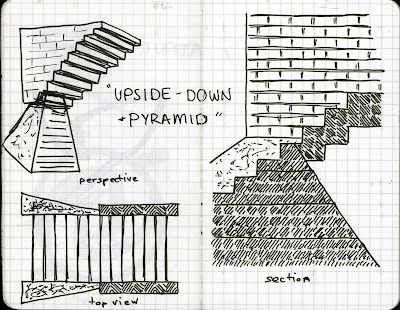 "UPSIDE-DOWN
+ PYRAMID"
perspective
top view
section